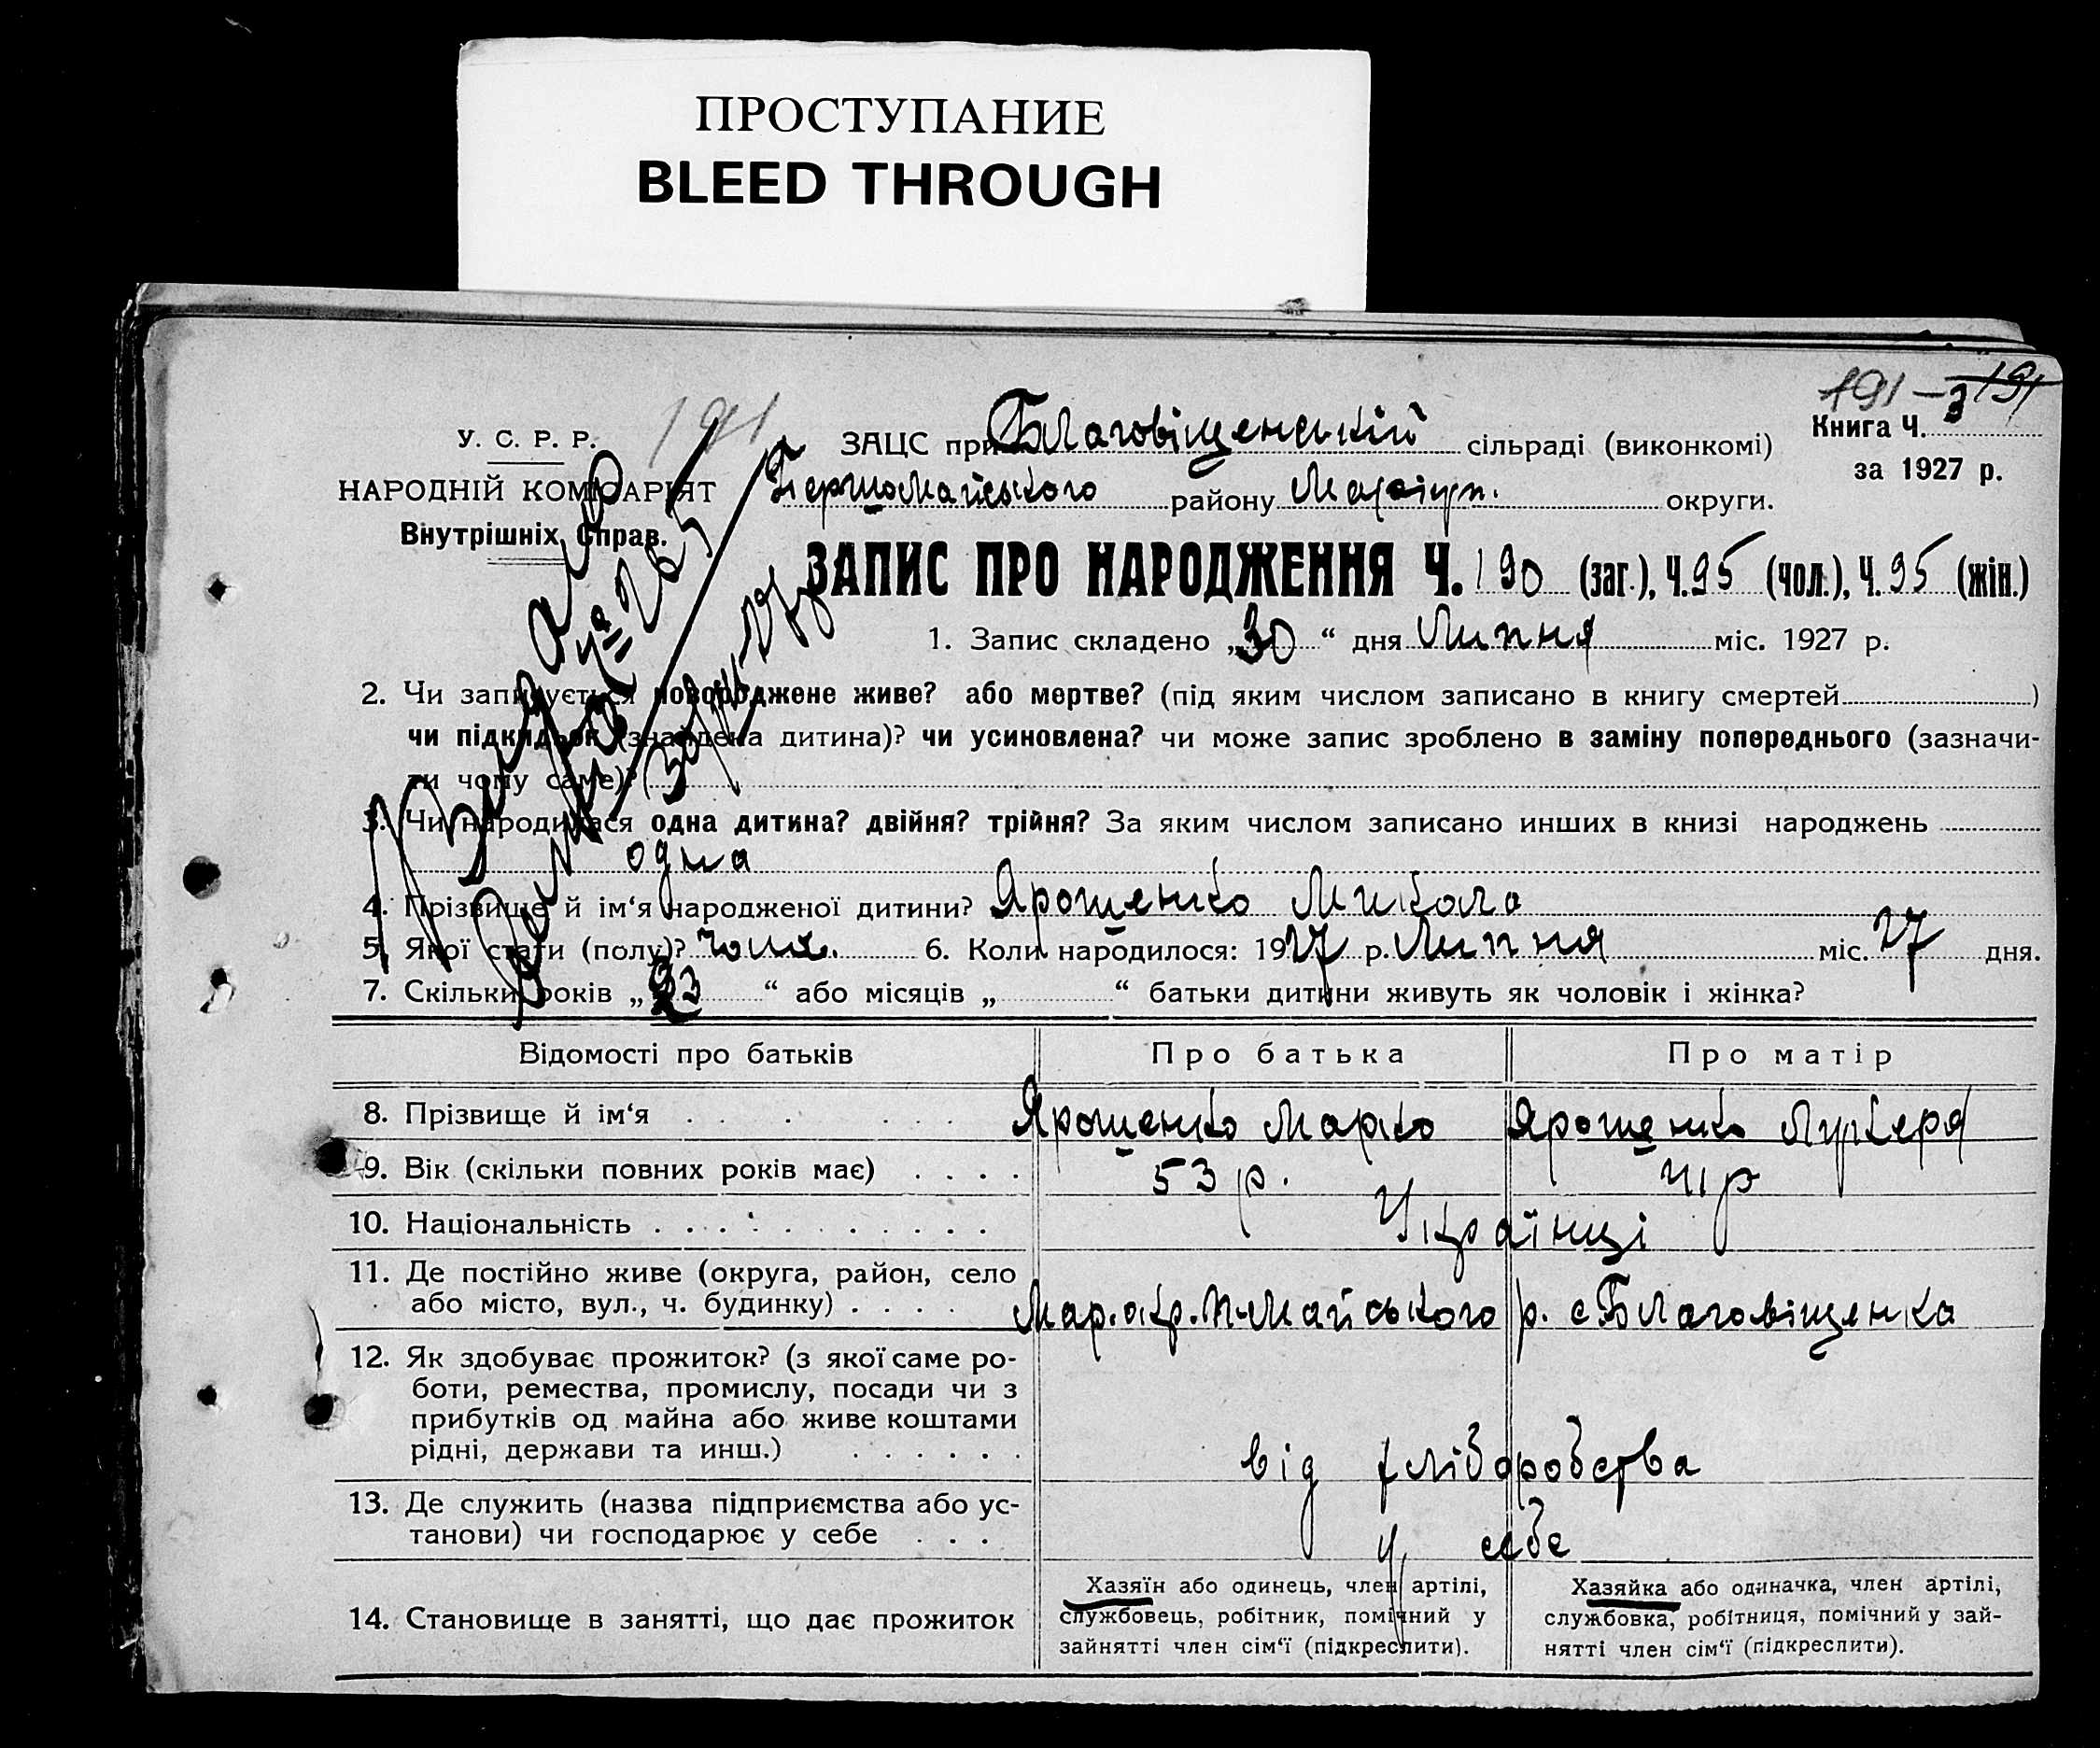 ПРОСТУПАНИЕ
BLEED THROUGH
191 – 191
У. С. Р. Р.
191
НАРОДНІЙ КОМІСАРІЯТ
Внутрішніх Справ.
ЗАЦС при Благовіщенській сільраді (виконкомі)
Книга Ч. 3
за 1927 р.
Першомайського району Маріуп. округи.
ЗАПИС ПРО НАРОДЖЕННЯ Ч. 190 (заг.), Ч. 95 (чол.), Ч. 95 (жін.)
1. Запис складено „30“ дня Липня міс. 1927 р.
2. Чи записується новороджене живе? або мертве? (під яким числом записано в книгу смертей )
чи підкидьок (знайдена дитина)? чи усиновлена? чи може запис зроблено в заміну попереднього (зазначи-
ти чому саме)?
3. Чи народилася одна дитина? двійня? трійня? За яким числом записано инших в книзі народжень
одна
4. Прізвище й ім‘я народженої дитини? Ярошенко Микола
5. Якої стати (полу)? чол. 6. Коли народилося: 1927 р. Липня міс. 27 дня.
7. Скільки років „23“ або місяців „ “ батьки дитини живуть як чоловік і жінка?
Відомості про батьків Про батька Про матір
8. Прізвище й ім‘я . . . . . . Ярошенко Марко Ярошенко Лукеря
9. Вік (скільки повних років має) . . . . 53 р. 41 р
10. Національність . . . . . . . . . . Українці
11. Де постійно живе (округа, район, село
або місто, вул., ч. будинку) . . . . Мар. окр. П-Майського р. с Благовіщенка
12. Як здобуває прожиток? (з якої саме ро-
боти, ремества, промислу, посади чи з
прибутків од майна або живе коштами
рідні, держави та инш.) . . . . . . від хліборобства
13. Де служить (назва підприємства або ус-
танови) чи господарює у себе . . . у себе
14. Становище в занятті, що дає прожиток
Хазяїн або одинець, член артілі,
службовець, робітник, помічний у
зайнятті член сім‘ї (підкреслити).
Хазяйка або одиначка, член артілі,
службовка, робітниця, помічний у зай-
нятті член сім‘ї (підкреслити).